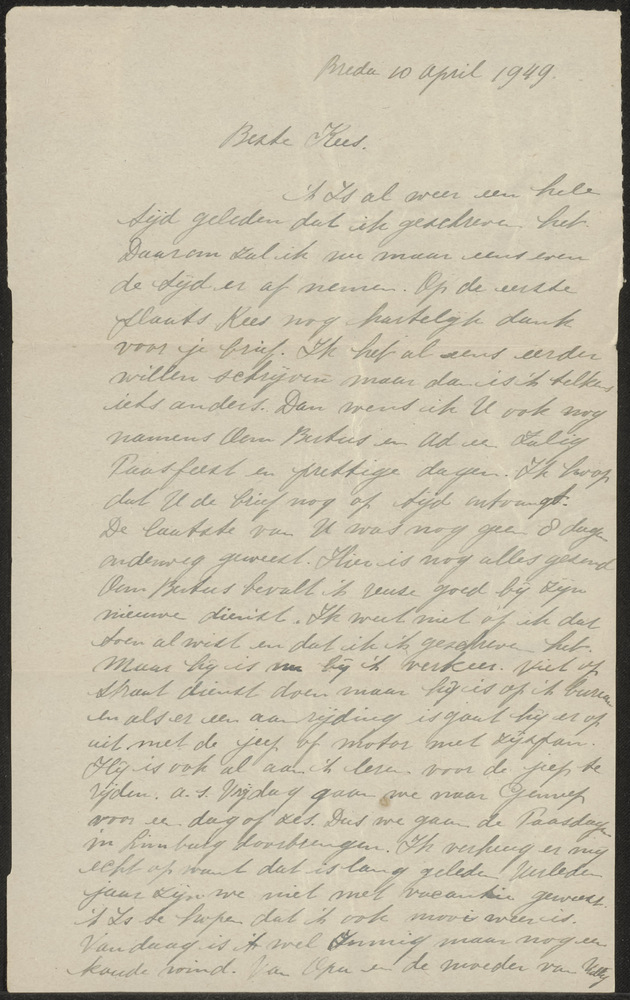 Breda 10 April 1949.
Beste Kees.
't Is al weer een hele
tijd geleden dat ik geschreven heb.
Daarom zal ik nu maar eens even
de tijd er af nemen. Op de eerste
plaats Kees nog hartelijk dank
voor je brief. Ik heb al eens eerder
willen schrijven maar dan is 't telkens
iets anders. Dan wens ik U ook nog
namens Oom Bertus en Ad een Zalig
Paasfeest en prettige dagen. Ik hoop
dat U de brief nog op tijd ontvangt.
De laatste van U was nog geen 8 dagen
onderweg geweest. Hier is nog alles gezond
Oom Bertus bevalt 't reuse goed bij zijn
nieuwe dienst. Ik weet niet of ik dat
toen al wist en dat ik 't geschreven heb.
Maar hij is nu bij 't verkeer. Niet op
straat dienst doen maar hij is op 't bureau
en als er een aanrijding is gaat hij er op
uit met de jeep of motor met zijspan.
Hij is ook al aan 't leren voor de jeep te
rijden. a.s. Vrijdag gaan we naar Gennep
voor een dag of zes. Dus we gaan de Paasdagen
in Limburg doorbrengen. Ik verheug er mij
echt op want dat is lang geleden. Verleden
jaar zijn we niet met vacantie geweest.
't Is te hopen dat 't ook mooi weer is.
Vandaag is 't wel zonnig maar nog een
koude wind. Van Opa en de moeder van